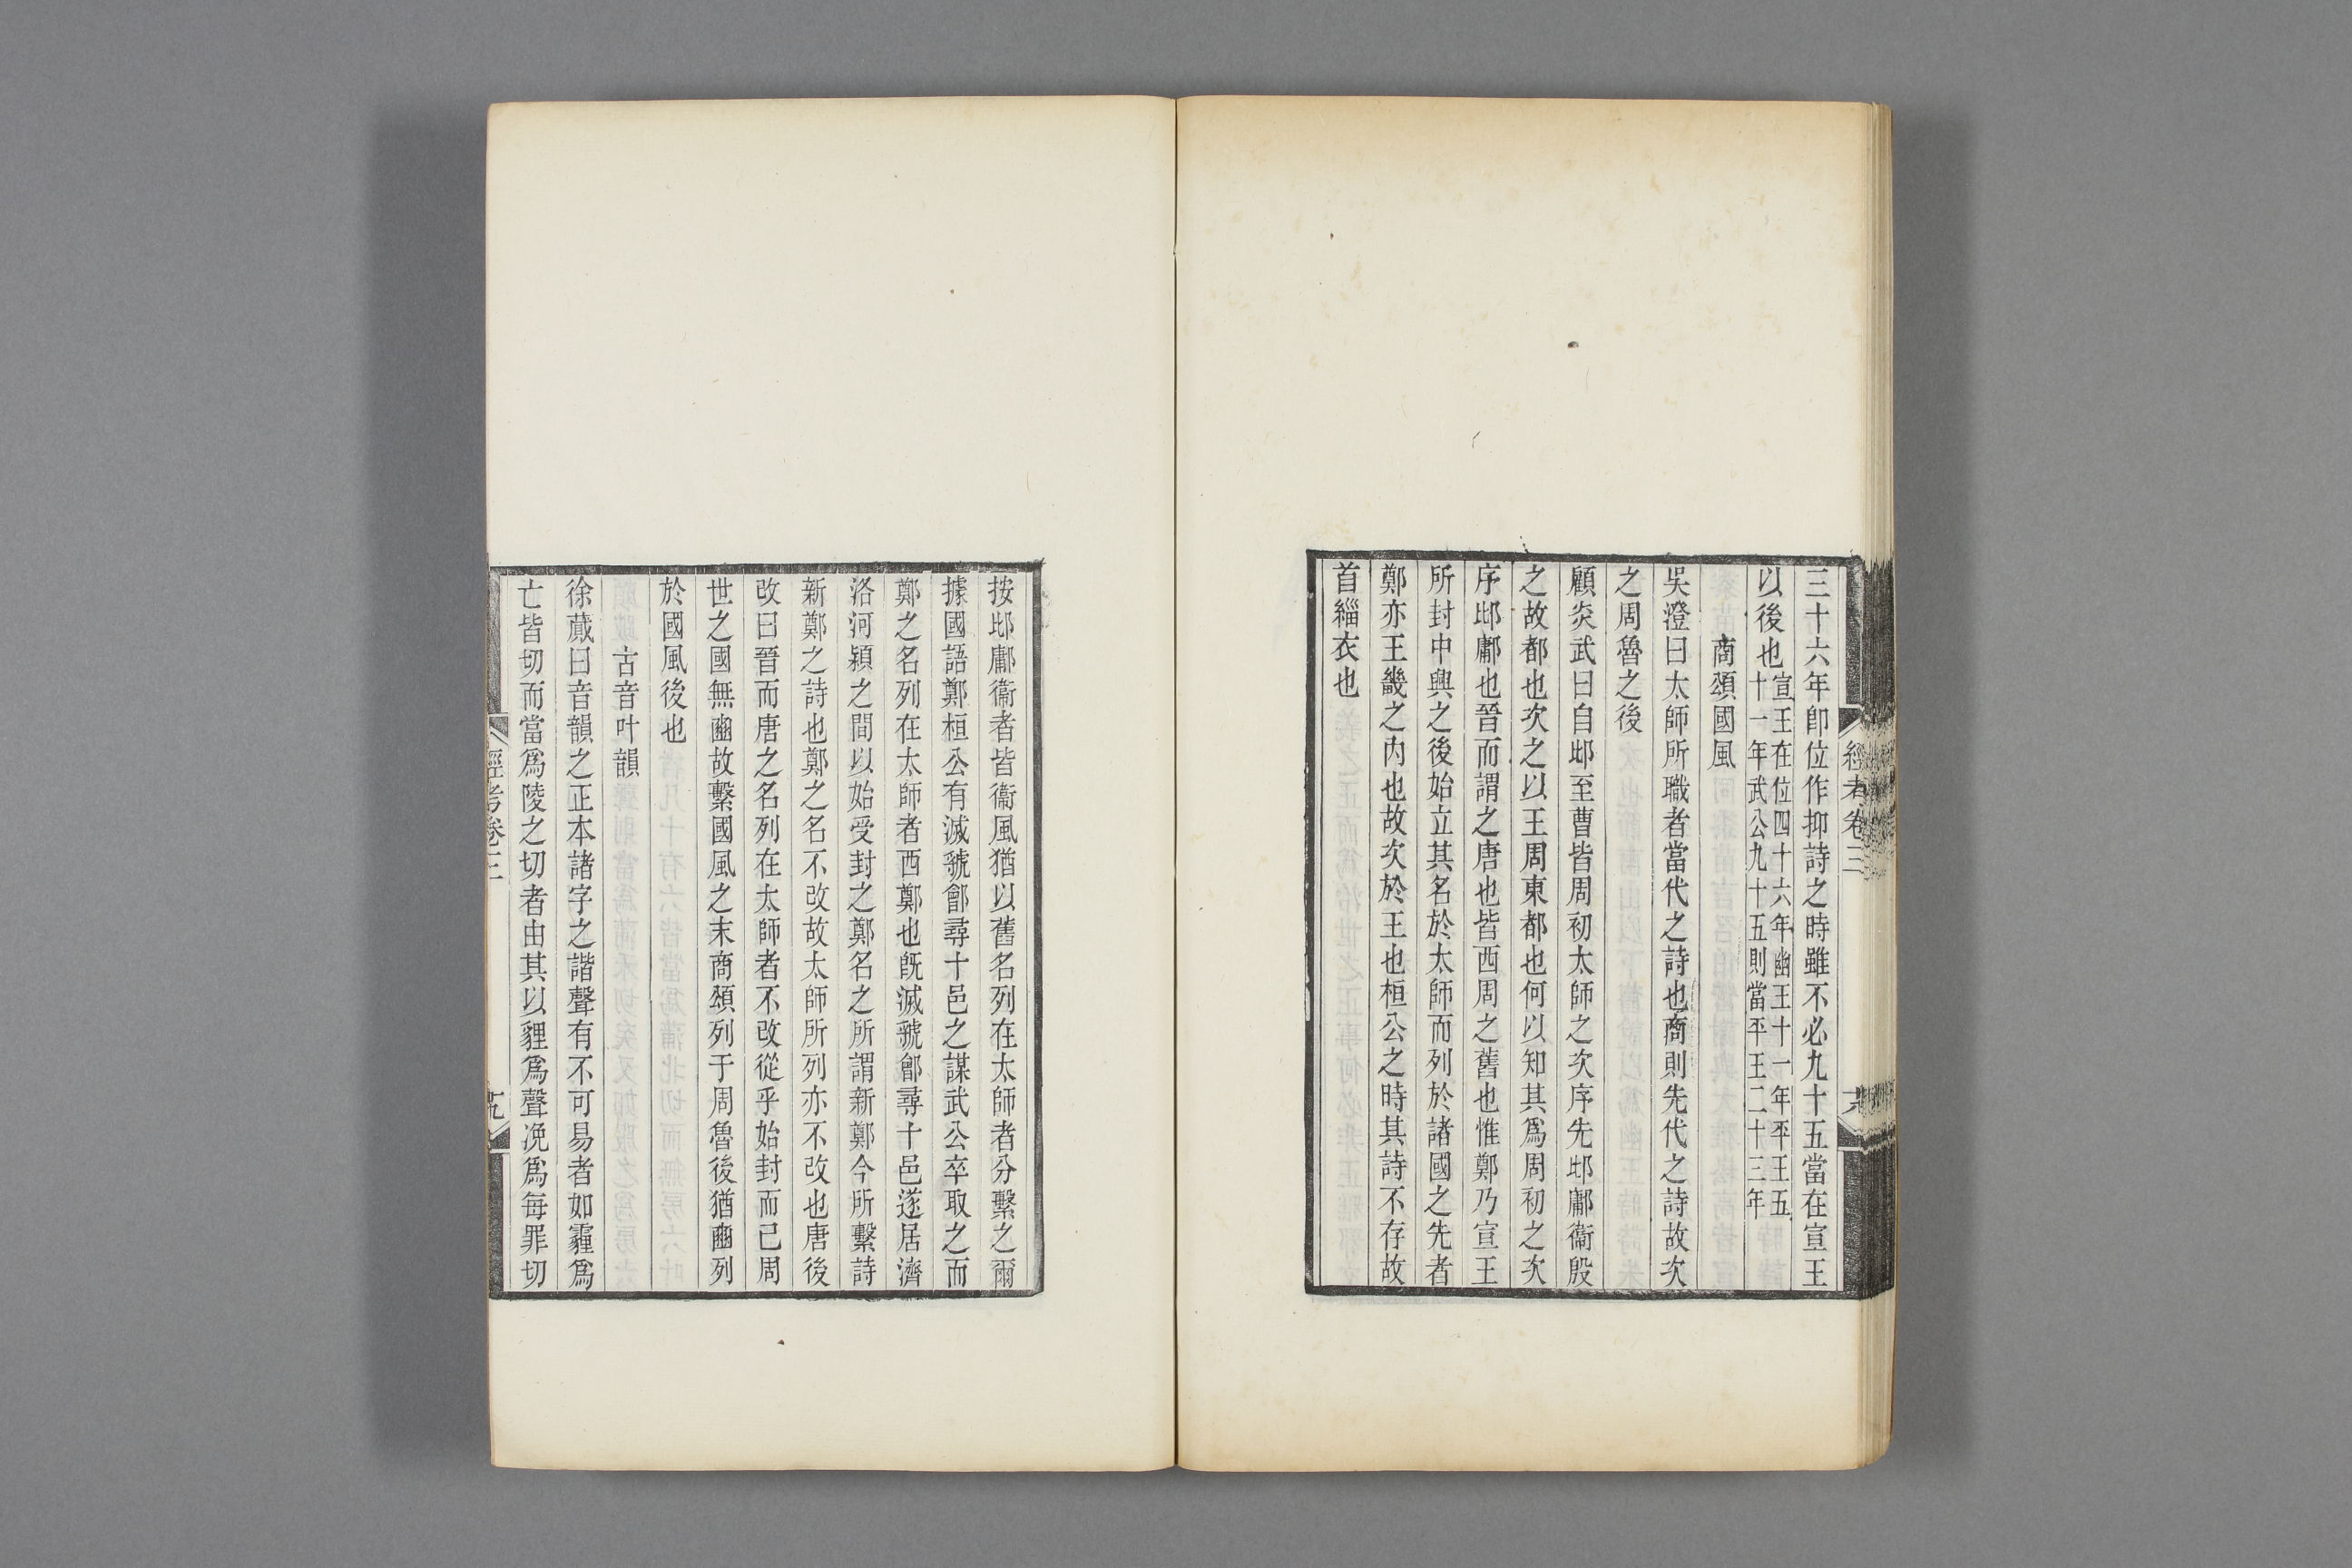 三十六年卽位作抑詩之時雖不必九十五當在宣王
以後也宣王在位四十六年幽王十一年平王五
十一年武公九十五則當平王二十三年
商頌國風
吳澄曰太師所職者當代之詩也商則先代之詩故次
之周魯之後
顧炎武曰自邶至曹皆周初太師之次序先邶鄘衞殷
之故都也次之以王周東都也何以知其爲周初之次
序邶鄘也晉而謂之唐也皆西周之舊也惟鄭乃宣王
所封中興之後始立其名於太師而列於諸國之先者
鄭亦王畿之內也故次於王也桓公之時其詩不存故
首緇衣也
經考卷三
按邶鄘衞者皆衞風猶以舊名列在太師者分繫之爾
據國語鄭桓公有滅虢鄶尋十邑之謀武公卒取之而
鄭之名列在太師者西鄭也旣滅虢鄶尋十邑遂居濟
洛河潁之間以始受封之鄭名之所謂新鄭今所繫詩
新鄭之詩也鄭之名不改故太師所列亦不改也唐後
改曰晉而唐之名列在太師者不改從乎始封而已周
世之國無豳故繫國風之末商頌列于周魯後猶豳列
於國風後也
古音叶韻
徐蕆曰音韻之正本諸字之諧聲有不可易者如霾爲
亡皆切而當爲陵之切者由其以貍爲聲浼爲每罪切
經考卷三